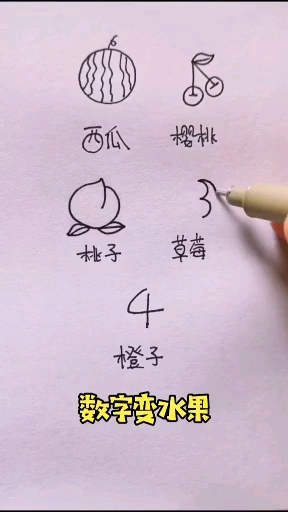 西瓜 樱桃
3
桃子 草莓
4
橙子
数字变水果